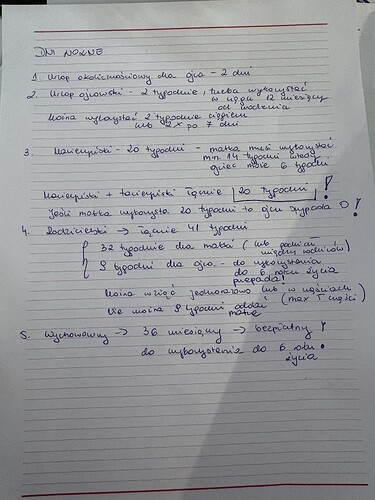 DNI WOLNE
1. Urlop okolicznościowy dla ojca - 2 dni
2. Urlop ojcowski - 2 tygodnie, trzeba wykorzystać
w ciągu 12 miesięcy
od urodzenia
Można wykorzystać 2 tygodnie ciągiem
lub 2x po 7 dni
3. Macierzyński - 20 tygodni - matka musi wykorzystać
min 14 tygodni
ojciec może 6 tygodni
Macierzyński + tacierzyński łącznie 20 tygodni !
Jeśli matka wykorzysta 20 tygodni to ojcu wypada 0 !
4. Rodzicielski → łącznie 41 tygodni
32 tygodnie dla matki (lub podział
między rodziców)
9 tygodni dla ojca - do wykorzystania
do 6 roku życia
przepada!
Można wziąć jednorazowo lub w częściach
(max 5 części)
Nie można 9 tygodni oddać
matce
5. Wychowawczy → 36 miesięcy → bezpłatny !
do wykorzystania do 6 roku
życia